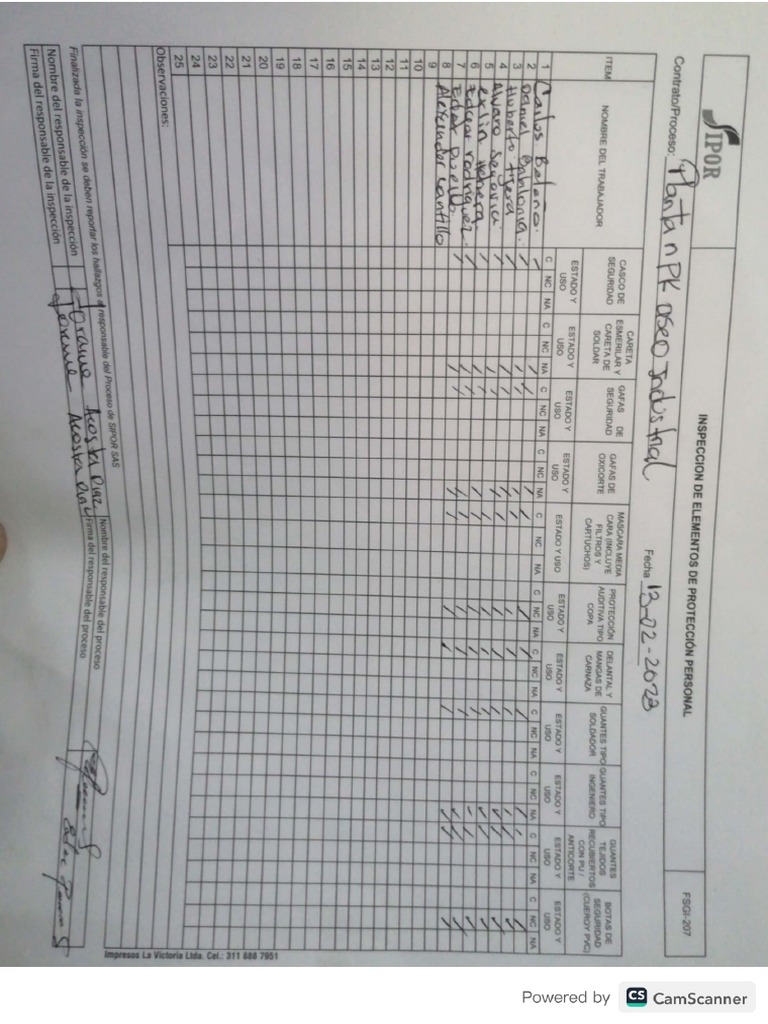 SIPOR
INSPECCION DE ELEMENTOS DE PROTECCIÓN PERSONAL
FSGI-207
Contrato/Proceso: Planta nPK aseo Industrial
Fecha 13-02-2023
ITEM NOMBRE DEL TRABAJADOR CASCO DE SEGURIDAD CARETA ESMERILAR Y CARETA DE SOLDAR GAFAS DE SEGURIDAD GAFAS DE OXICORTE MASCARA MEDIA CARA (INCLUYE FILTROS Y CARTUCHOS) PROTECCIÓN AUDITIVA TIPO COPA DELANTAL Y MANGAS DE CARNAZA GUANTES TIPO SOLDADOR GUANTES TIPO INGENIERO GUANTES TEJIDOS RECUBIERTOS CON PU / ANTICORTE BOTAS DE SEGURIDAD (CUERO Y PVC)
ESTADO Y USO ESTADO Y USO ESTADO Y USO ESTADO Y USO ESTADO Y USO ESTADO Y USO ESTADO Y USO ESTADO Y USO ESTADO Y USO ESTADO Y USO ESTADO Y USO
C NC NA C NC NA C NC NA C NC NA C NC NA C NC NA C NC NA C NC NA C NC NA C NC NA C NC NA
1 Carlos Bolaño.
2 Daniel
3 Huberto
4 Alvaro Segovia
5
6 Edgar rodriguez
7
8 Alexander Santillo
9
10
11
12
13
14
15
16
17
18
19
20
21
22
23
24
25
Observaciones:
Finalizada la inspección se deben reportar los hallazgos al responsable del Proceso de SIPOR SAS
Nombre del responsable de la inspección Acosta Diaz Nombre del responsable del proceso
Firma del responsable de la inspección Acosta Diaz Firma del responsable del proceso
Impresos La Victoria Ltda. Cel.: 311 688 7951
Powered by CS CamScanner